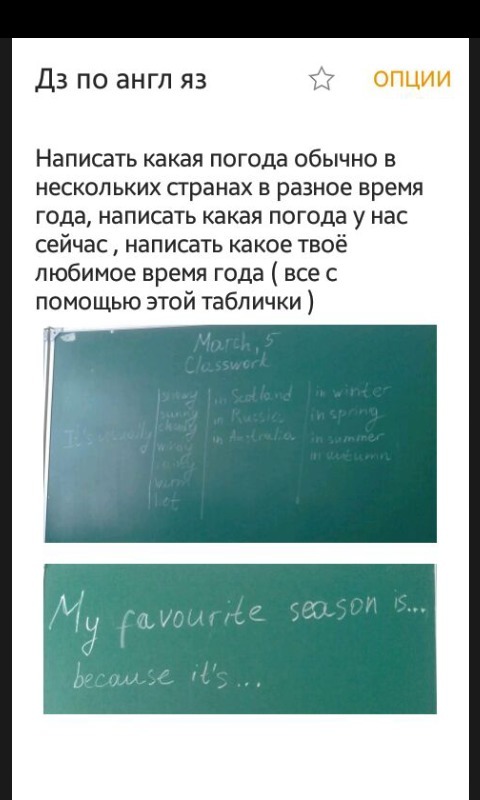 Дз по англ яз
ОПЦИИ
Написать какая погода обычно в
нескольких странах в разное время
года, написать какая погода у нас
сейчас , написать какое твоё
любимое время года ( все с
помощью этой таблички )
March, 5
Classwork
It's usually
snowy
sunny
cloudy
windy
warm
hot
in Scotland
in Russia
in Australia
in winter
in spring
in summer
in autumn
My favourite season is...
because it's...